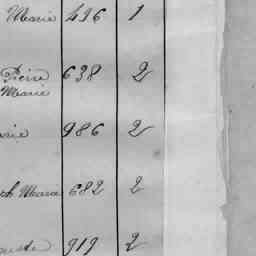 Marie 496 1
Pierre 638 2
Marie
986 2
Maria 682 2
919 2